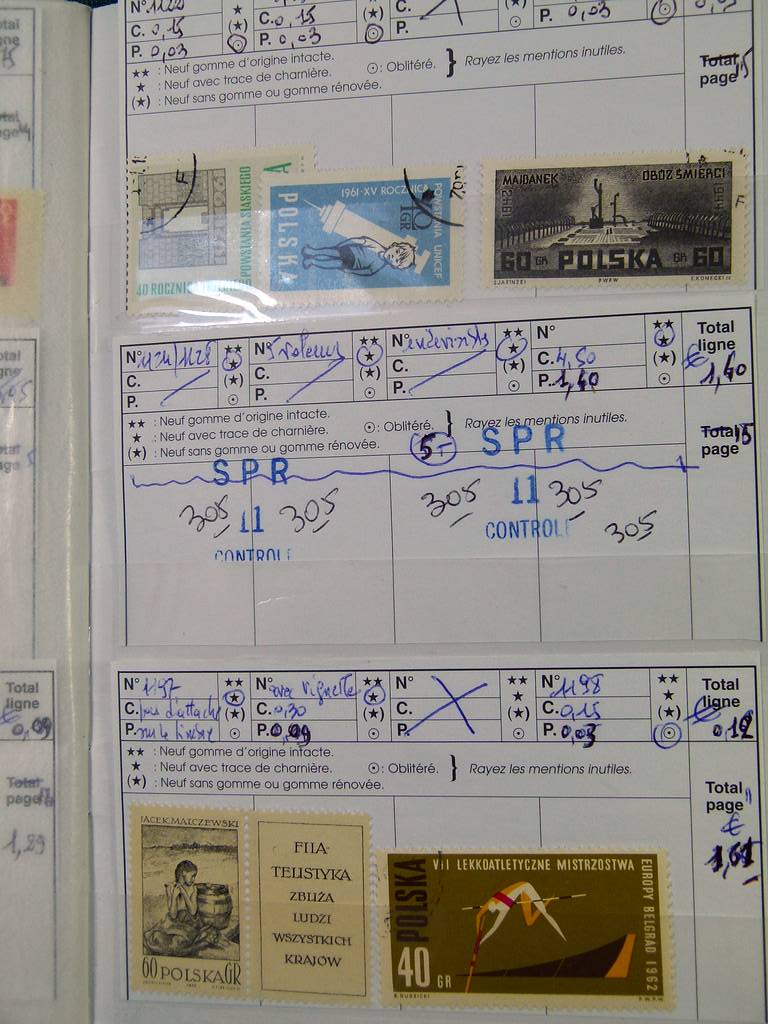 N° 1120
C. 0,15
P. 0,03
C. 0,15
P. 0,03
P. 0,03
★★ : Neuf gomme d'origine intacte.
★ : Neuf avec trace de charnière.
(★) : Neuf sans gomme ou gomme rénovée.
⊙ : Oblitéré.
Rayez les mentions inutiles.
Total
page
40 ROCZNICA
POWSTANIA ŚLĄSKIEGO
POLSKA
1961·XV ROCZNICA
POWSTANIA UNICEF
MAJDANEK
OBÓZ ŚMIERCI
60 GR POLSKA GR 60
N° 1124/1128
C.
P.
N° 5 valeurs
C.
P.
N°
C.
P.
N°
C. 4,50
P. 1,40
Total
ligne
€ 1,40
★★ : Neuf gomme d'origine intacte.
★ : Neuf avec trace de charnière.
(★) : Neuf sans gomme ou gomme rénovée.
⊙ : Oblitéré.
Rayez les mentions inutiles.
Total
page
5-
SPR
11
CONTROLE
SPR
11
CONTROL
305
305
305
305
305
N° 1197
C. pas d'attache
P. sur le timbre
N° avec vignette
C. 0,30
P. 0,09
N°
C.
P.
N° 1198
C. 0,15
P. 0,03
Total
ligne
€ 0,12
★★ : Neuf gomme d'origine intacte.
★ : Neuf avec trace de charnière.
(★) : Neuf sans gomme ou gomme rénovée.
⊙ : Oblitéré.
Rayez les mentions inutiles.
Total
page
€
JACEK MALCZEWSKI
60 POLSKA GR
FILA
TELISTYKA
ZBLIŻA
LUDZI
WSZYSTKICH
KRAJÓW
POLSKA
VII LEKKOATLETYCZNE MISTRZOSTWA
EUROPY BELGRAD 1962
40 GR
Total
ligne
€ 0,09
Total
page
1,29